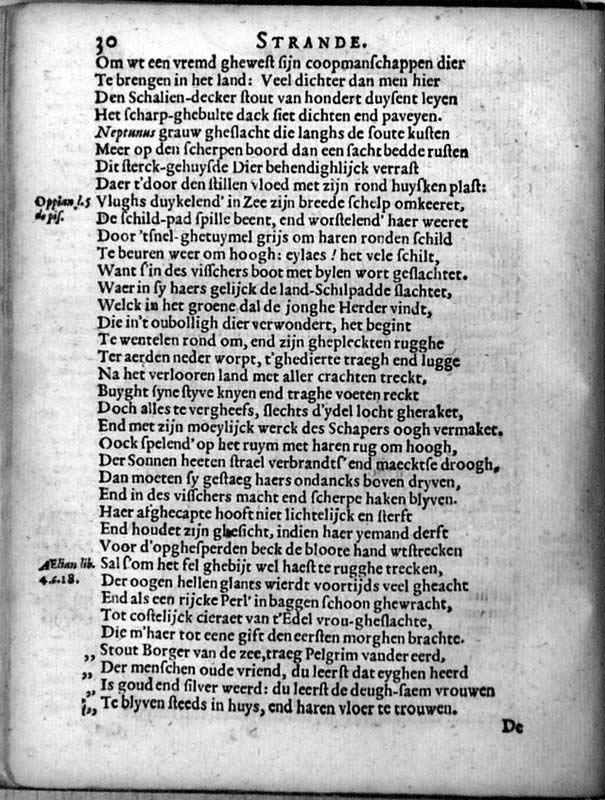 30 STRANDE.
Om wt een vremd ghewest sijn coopmanschappen dier
Te brengen in het land: Veel dichter dan men hier
Den Schalien-decker stout van hondert duysent leyen
Het scharp-ghebulte dack siet dichten end paveyen.
Neptunus grauw gheslacht die langhs de soute kusten
Meer op den scherpen boord dan een sacht bedde rusten
Dit sterck-gehuysde Dier behendighlijck verrast
Daer t'door den stillen vloed met zijn rond huysken plast:
Oppian. l.5 Vlughs duykelend' in Zee zijn breede schelp omkeeret,
de pis. De schild-pad spille beent, end worstelend' haer weeret
Door 'tsnel-ghetuymel grijs om haren ronden schild
Te beuren weer om hoogh: eylaes! het vele schilt,
Want s'in des visschers boot met bylen wort geslachtet.
Waer in sy haers gelijck de land-Schilpadde slachtet,
Welck in het groene dal de jonghe Herder vindt,
Die in't oubolligh dier verwondert, het begint
Te wentelen rond om, end zijn ghepleckten rugghe
Ter aerden neder worpt, t'ghedierte traegh end lugge
Na het verlooren land met aller crachten treckt,
Buyght syne styve knyen end traghe voeten reckt
Doch alles te vergheefs, slechts d'ydel locht gheraket,
End met zijn moeylijck werck des Schapers oogh vermaket.
Oock spelend' op het ruym met haren rug om hoogh,
Der Sonnen heeten strael verbrandts' end maecktse droogh,
Dan moeten sy gestaeg haers ondancks boven dryven,
End in des visschers macht end scherpe haken blyven.
Haer afghecapte hooft niet lichtelijck en sterft
End houdet zijn ghesicht, indien haer yemand derft
Voor d'opghesperden beck de bloote hand wtstrecken
Ælian lib. Sal s'om het fel ghebijt wel haest te rugghe trecken,
4.c.18. Der oogen hellen glants wierdt voortijds veel gheacht
End als een rijcke Perl' in baggen schoon ghewracht,
Tot costelijck cieraet van t'Edel vrou-gheslachte,
Die m'haer tot eene gift den eersten morghen brachte.
,, Stout Borger van de zee, traeg Pelgrim vander eerd,
,, Der menschen oude vriend, du leerst dat eyghen heerd
,, Is goud end silver weerd: du leerst de deugh-saem vrouwen
,, Te blyven steeds in huys, end haren vloer te trouwen.
De